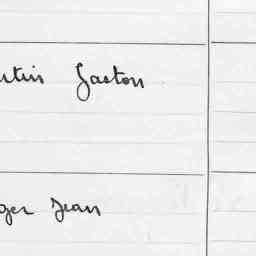 rtin Gaston
ger Jean